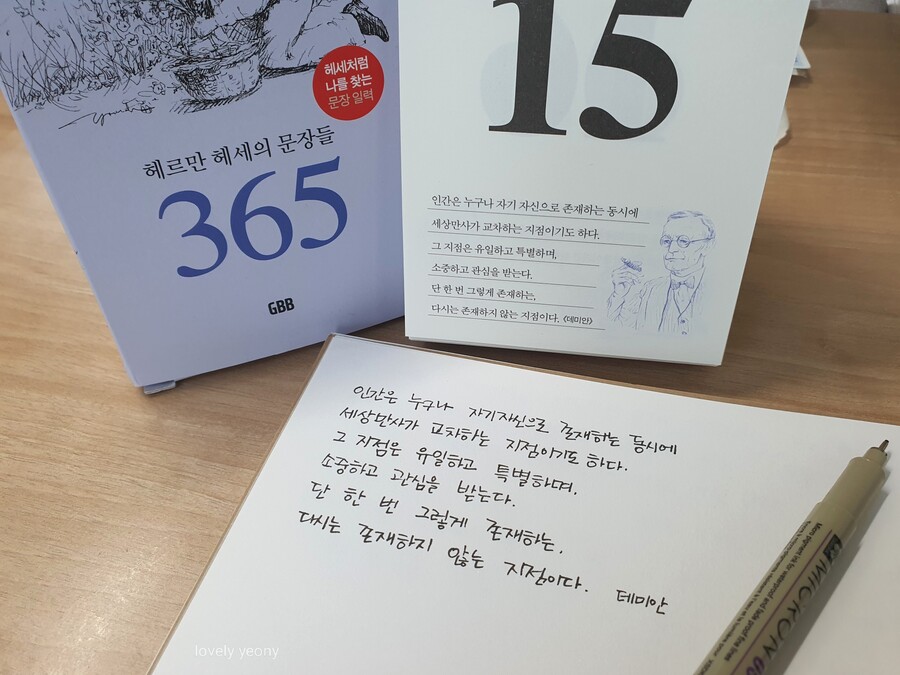 헤세처럼
나를 찾는
문장 일력
헤르만 헤세의 문장들
365
GBB
15
인간은 누구나 자기 자신으로 존재하는 동시에
세상만사가 교차하는 지점이기도 하다.
그 지점은 유일하고 특별하며,
소중하고 관심을 받는다.
단 한 번 그렇게 존재하는,
다시는 존재하지 않는 지점이다. 《데미안》
인간은 누구나 자기자신으로 존재하는 동시에
세상만사가 교차하는 지점이기도 하다.
그 지점은 유일하고 특별하며,
소중하고 관심을 받는다.
단 한 번 그렇게 존재하는,
다시는 존재하지 않는 지점이다. 데미안
MICRON
lovely yeony